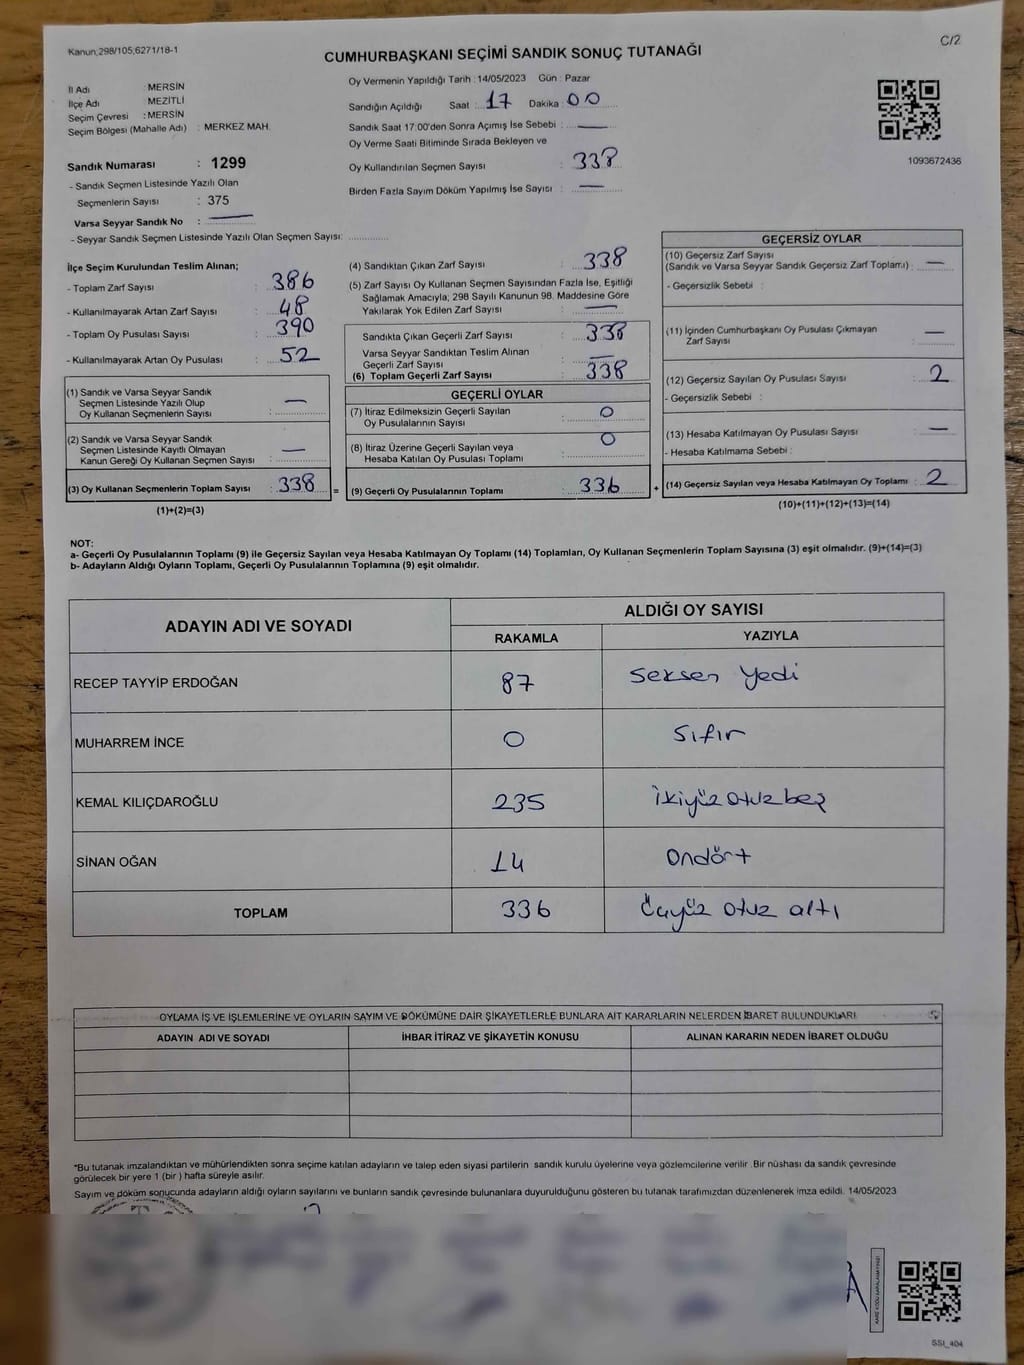 Kanun;298/105;6271/18-1
C/2
CUMHURBAŞKANI SEÇİMİ SANDIK SONUÇ TUTANAĞI
İl Adı : MERSİN
İlçe Adı : MEZİTLİ
Seçim Çevresi : MERSİN
Seçim Bölgesi (Mahalle Adı) : MERKEZ MAH.
Sandık Numarası : 1299
- Sandık Seçmen Listesinde Yazılı Olan
Seçmenlerin Sayısı : 375
Varsa Seyyar Sandık No :
- Seyyar Sandık Seçmen Listesinde Yazılı Olan Seçmen Sayısı:
Oy Vermenin Yapıldığı Tarih : 14/05/2023 Gün : Pazar
Sandığın Açıldığı Saat : 17 Dakika : 00
Sandık Saat 17:00'den Sonra Açımış İse Sebebi :
Oy Verme Saati Bitiminde Sırada Bekleyen ve
Oy Kullandırılan Seçmen Sayısı : 338
Birden Fazla Sayım Döküm Yapılmış İse Sayısı :
1093672436
İlçe Seçim Kurulundan Teslim Alınan;
- Toplam Zarf Sayısı : 386
- Kullanılmayarak Artan Zarf Sayısı : 48
- Toplam Oy Pusulası Sayısı : 390
- Kullanılmayarak Artan Oy Pusulası : 52
(1) Sandık ve Varsa Seyyar Sandık
Seçmen Listesinde Yazılı Olup
Oy Kullanan Seçmenlerin Sayısı : —
(2) Sandık ve Varsa Seyyar Sandık
Seçmen Listesinde Kayıtlı Olmayan
Kanun Gereği Oy Kullanan Seçmen Sayısı : —
(3) Oy Kullanan Seçmenlerin Toplam Sayısı : 338
(1)+(2)=(3)
(4) Sandıktan Çıkan Zarf Sayısı : 338
(5) Zarf Sayısı Oy Kullanan Seçmen Sayısından Fazla İse, Eşitliği
Sağlamak Amacıyla; 298 Sayılı Kanunun 98. Maddesine Göre
Yakılarak Yok Edilen Zarf Sayısı : —
Sandıkta Çıkan Geçerli Zarf Sayısı : 338
Varsa Seyyar Sandıktan Teslim Alınan
Geçerli Zarf Sayısı : —
(6) Toplam Geçerli Zarf Sayısı : 338
GEÇERLİ OYLAR
(7) İtiraz Edilmeksizin Geçerli Sayılan
Oy Pusulalarının Sayısı : 0
(8) İtiraz Üzerine Geçerli Sayılan veya
Hesaba Katılan Oy Pusulası Toplamı : 0
= (9) Geçerli Oy Pusulalarının Toplamı : 336
GEÇERSİZ OYLAR
(10) Geçersiz Zarf Sayısı
(Sandık ve Varsa Seyyar Sandık Geçersiz Zarf Toplamı) : —
- Geçersizlik Sebebi :
(11) İçinden Cumhurbaşkanı Oy Pusulası Çıkmayan
Zarf Sayısı : —
(12) Geçersiz Sayılan Oy Pusulası Sayısı : 2
- Geçersizlik Sebebi :
(13) Hesaba Katılmayan Oy Pusulası Sayısı : —
- Hesaba Katılmama Sebebi :
+ (14) Geçersiz Sayılan veya Hesaba Katılmayan Oy Toplamı : 2
(10)+(11)+(12)+(13)=(14)
NOT:
a- Geçerli Oy Pusulalarının Toplamı (9) ile Geçersiz Sayılan veya Hesaba Katılmayan Oy Toplamı (14) Toplamları, Oy Kullanan Seçmenlerin Toplam Sayısına (3) eşit olmalıdır. (9)+(14)=(3)
b- Adayların Aldığı Oyların Toplamı, Geçerli Oy Pusulalarının Toplamına (9) eşit olmalıdır.
ADAYIN ADI VE SOYADI
ALDIĞI OY SAYISI
RAKAMLA YAZIYLA
RECEP TAYYİP ERDOĞAN 87 Seksen Yedi
MUHARREM İNCE 0 Sıfır
KEMAL KILIÇDAROĞLU 235 İkiyüz otuz beş
SİNAN OĞAN 14 Ondört
TOPLAM 336 Üçyüz otuz altı
OYLAMA İŞ VE İŞLEMLERİNE VE OYLARIN SAYIM VE DÖKÜMÜNE DAİR ŞİKAYETLERLE BUNLARA AİT KARARLARIN NELERDEN İBARET BULUNDUKLARI
ADAYIN ADI VE SOYADI İHBAR İTİRAZ VE ŞİKAYETİN KONUSU ALINAN KARARIN NEDEN İBARET OLDUĞU
*Bu tutanak imzalandıktan ve mühürlendikten sonra seçime katılan adayların ve talep eden siyasi partilerin sandık kurulu üyelerine veya gözlemcilerine verilir. Bir nüshası da sandık çevresinde
görülecek bir yere 1 (bir) hafta süreyle asılır.
Sayım ve döküm sonucunda adayların aldığı oyların sayılarını ve bunların sandık çevresinde bulunanlara duyurulduğunu gösteren bu tutanak tarafımızdan düzenlenerek imza edildi. 14/05/2023
SSI_404